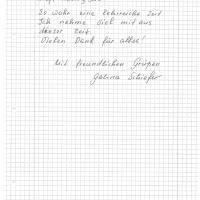 So wahr eine lehrreiche Zeit
Ich nehme viel mit aus
dieser Zeit.
Vielen Dank für alles!
Mit freundlichen Grüßen
Galina Schiefer